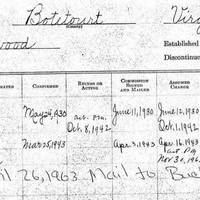 Botetourt Virg
(County)
wood Established
Discontinue
NATED CONFIRMED RECESS OR ACTING COMMISSION SIGNED AND MAILED ASSUMED CHARGE
May 24, 1930 act. P.M. June 11, 1930 June 12, 1930
Oct. 8, 1942 Oct. 1, 1942
Mar 25, 1943 Apr. 3, 1943 Apr. 16, 1943
last Pay
Nov 30, 196
il 26, 1963 Mail to Buc